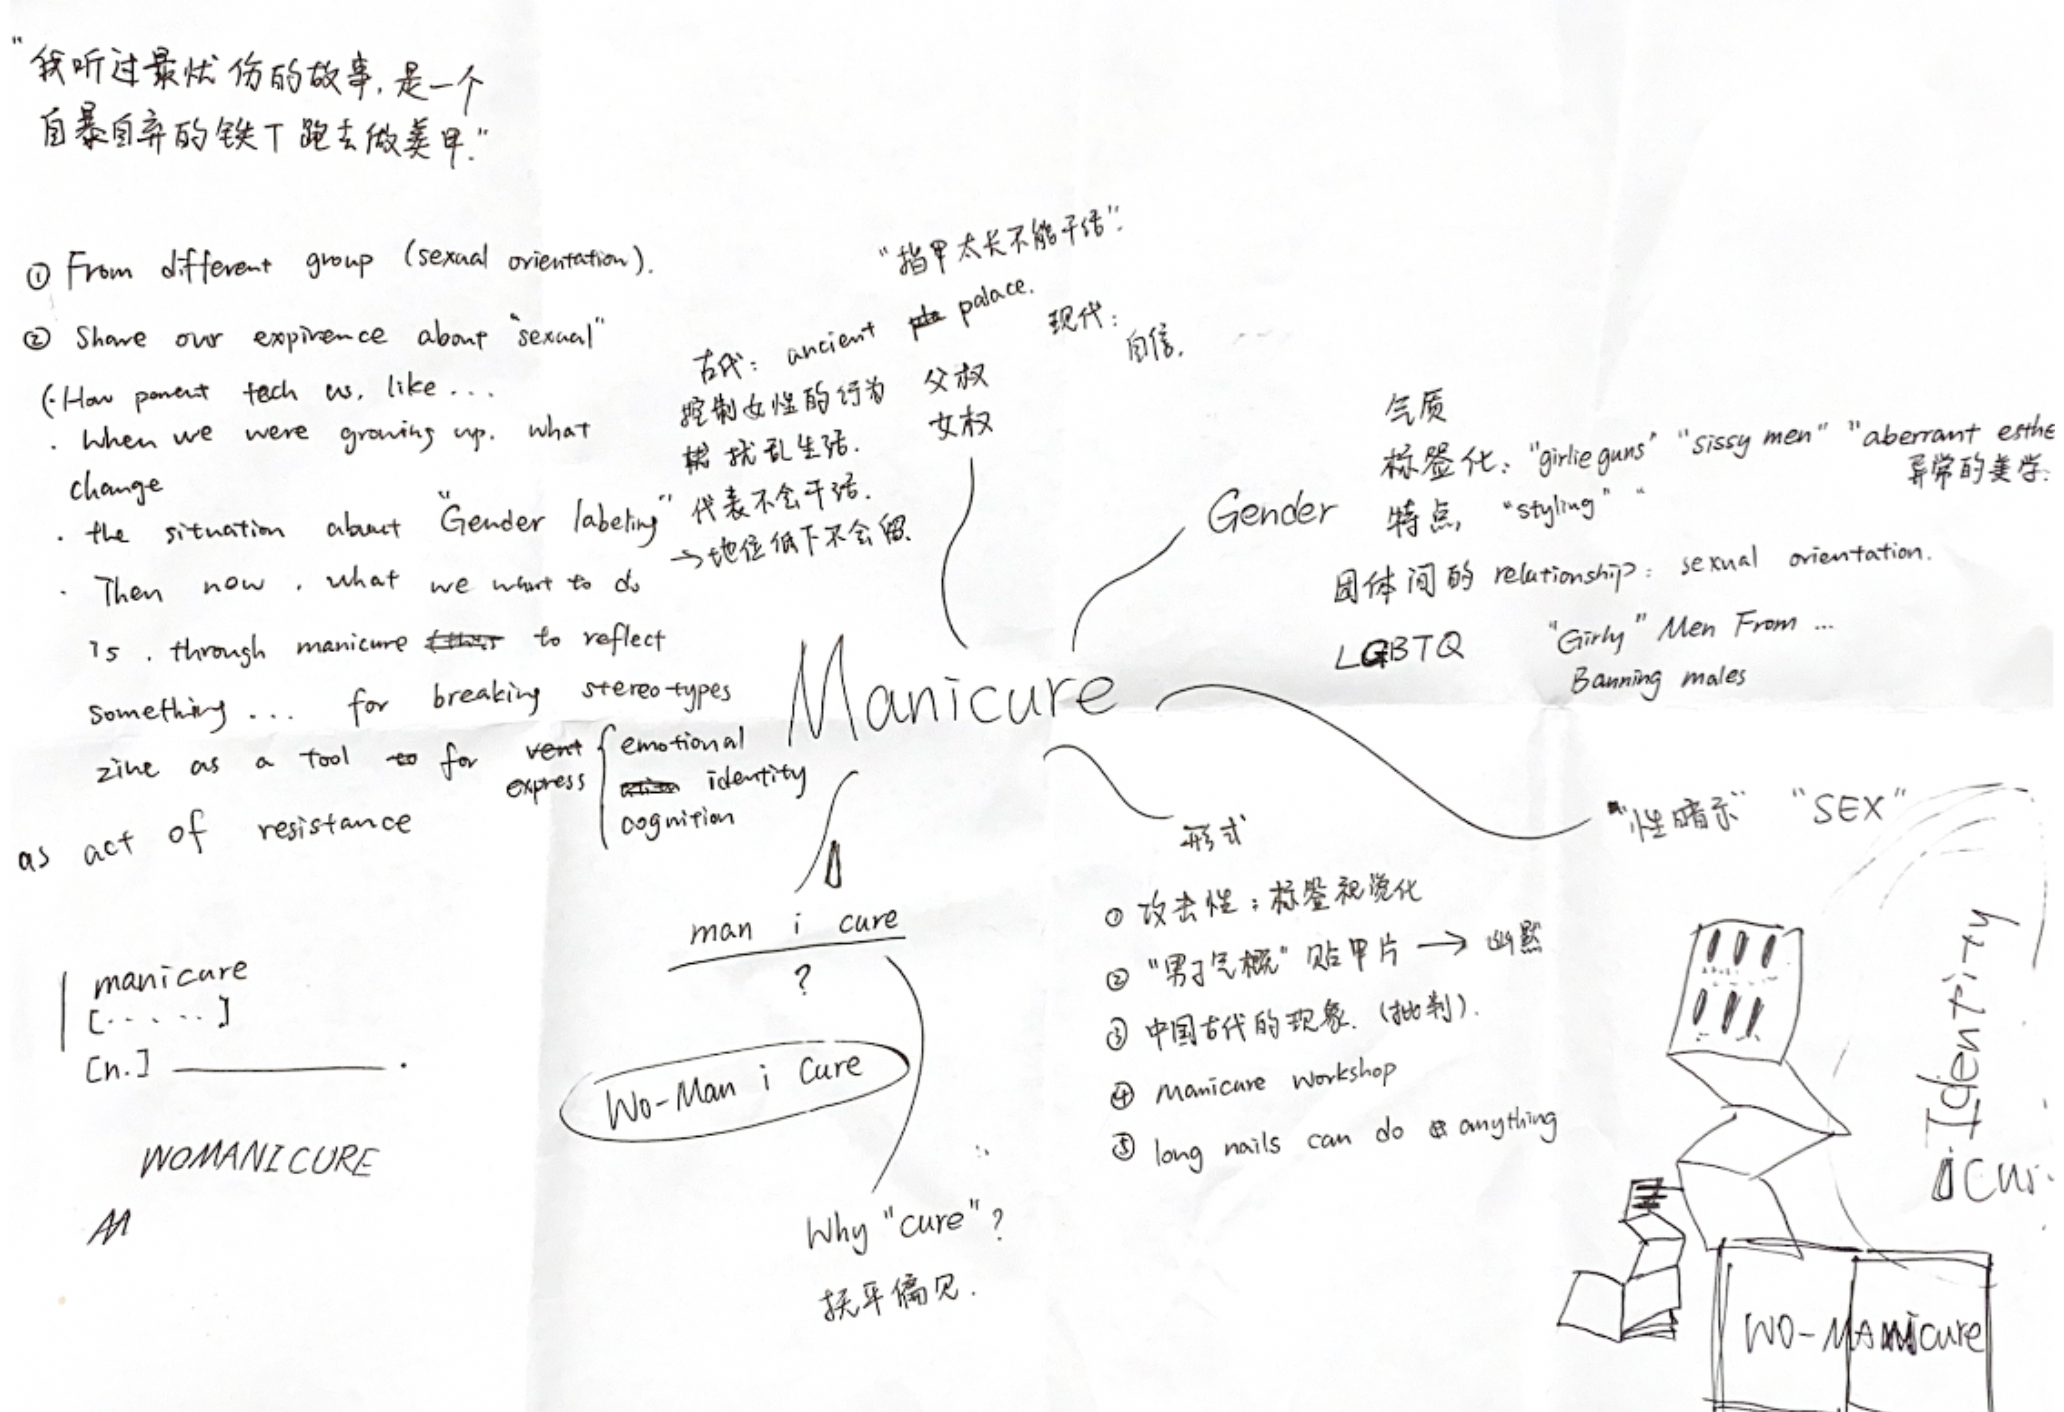 "我听过最忧伤的故事,是一个
自暴自弃的铁T跑去做美甲."
① From different group (sexual orientation).
② Share our expirence about "sexual"
(·How parent tech us, like ...
· When we were growing up. what
change
· the situation about "Gender labeling"
· Then now , what we want to do
is , through manicure to reflect
something ... for breaking stereotypes
zine as a tool for express
emotional
identity
cognition
as act of resistance
manicure
[......]
[n.] ________ .
WOMANICURE
"指甲太长不能干活".
古代: ancient palace.
控制女性的行为
扰乱生活.
代表不会干活.
→地位低下不会留.
父权
女权
现代:
自信.
Manicure
Gender
气质
标签化: "girlie guns" "sissy men" "aberrant esthe
异常的美学.
特点, "styling" "
团体间的 relationship: sexual orientation.
LGBTQ
"Girly" Men From ...
Banning males
"性暗示" "SEX"
形式
① 攻击性: 标签视觉化
② "男子气概" 贴甲片 → 幽默
③ 中国古代的现象. (批判).
④ manicure workshop
⑤ long nails can do anything
man i cure
?
Wo-Man i Cure
Why "cure"?
抚平偏见.
Identity
icur.
WO-MANicure